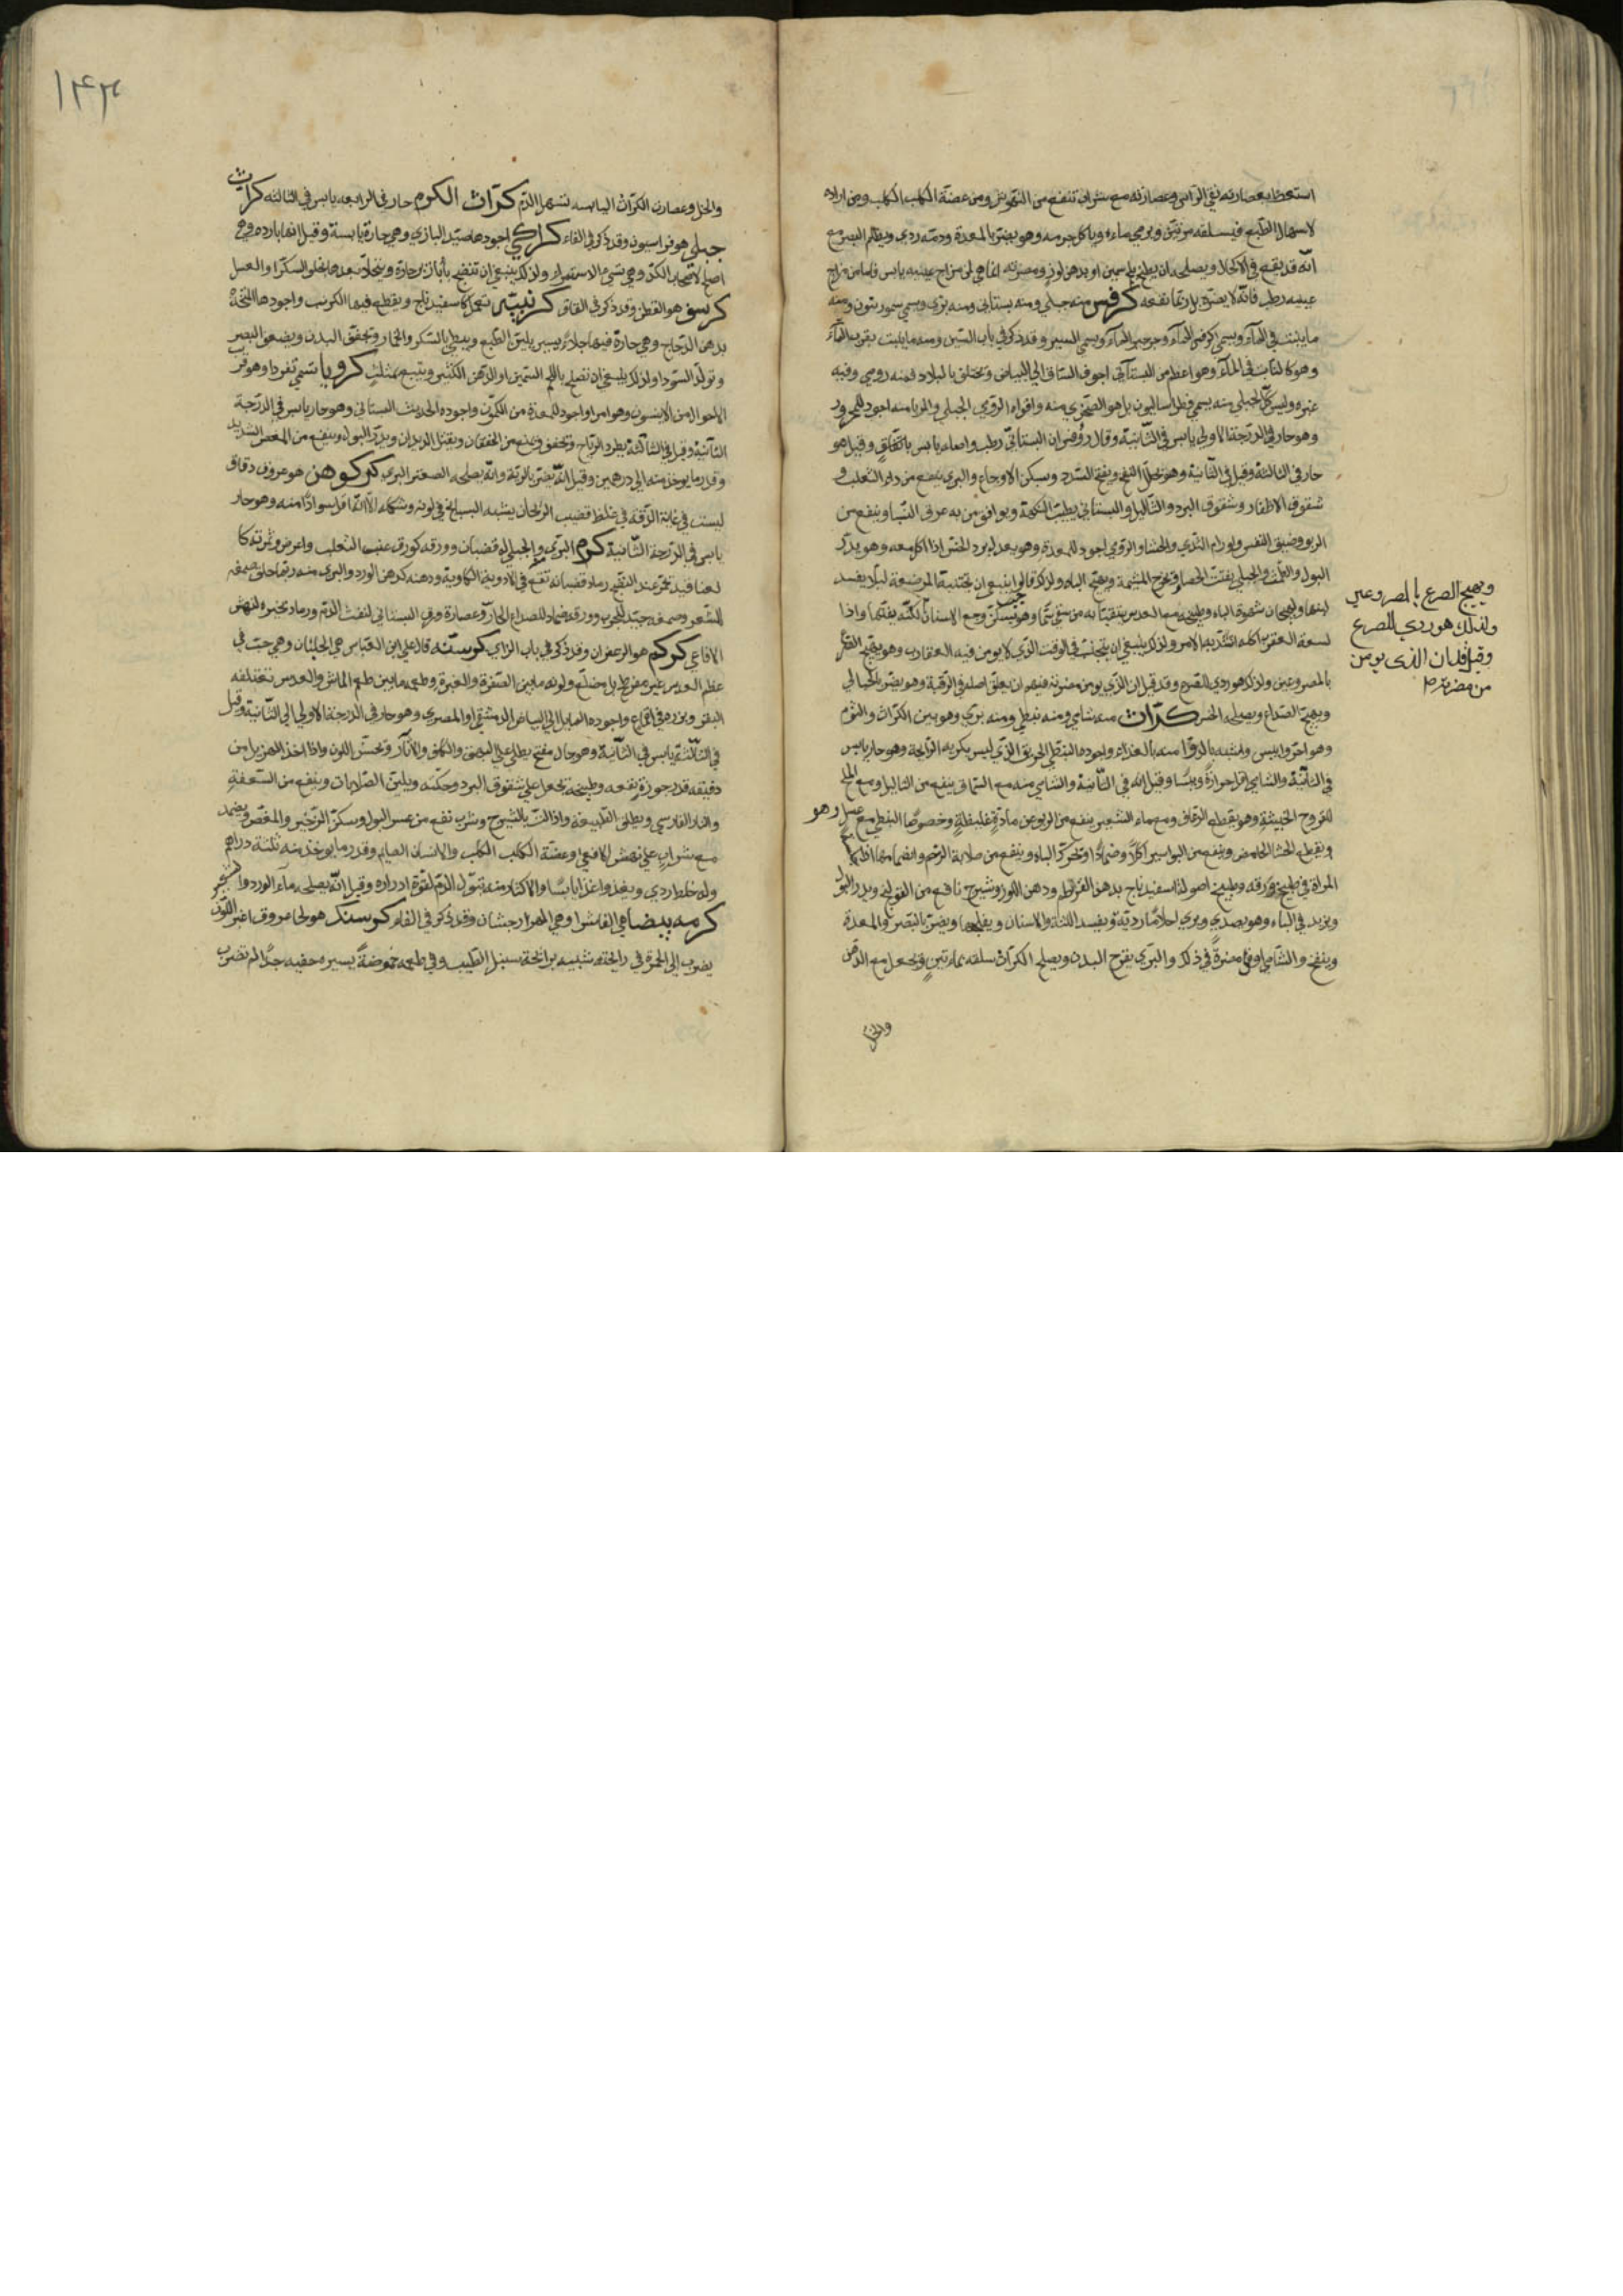 استعط بعصارته نقي الراس وعصارته مع شراب تنفع من النهوش ومن عضة الكلب الكلب ومن اراده
لاسهال الطبع فيسلقه مرتين ويرمي ماءه وياكل جرمه وهو يضر بالمعدة ودمه ردي ويظلم البصر مع
انه قد يقع في الاكحال ويصلحه ان يطبخ بلحم سمين او بدهن لوز ومضرته انما هي لمن مزاج عينيه يابس فاما من مزاج
عينيه رطب فانه لا يضره بل ربما نفعه كرفس منه جبلي ومنه بستاني ومنه بري ويسمي سمورنيون ومنه
ما ينبت في الماء ويسمي كرفس الماء وجرجير الماء ويسمي السيسنبر وقد ذكر في باب السين ومنه ما ينبت بقرب الماء
وهو كالنابت في الماء وهو اعظم من البستاني اجوف الساق الي البياض ويختلف بالبلاد فمنه رومي وفيه
غيره وليس كل الجبلي منه يسمي فطراساليون بل هو الصخري منه واقواه الرومي الجبلي والمربا منه اجود للمحرور
وهو حار في الدرجة الاولي يابس في الثانية وقال روفس ان البستاني رطب واصله يابس باتفاق وقيل هو
حار في الثالثة وقيل في الثانية وهو يحلل النفخ ويفتح السدد ويسكن الاوجاع والبري ينفع من داء الثعلب و
شقوق الاظفار وشقوق البرد والثاليل والبستاني يطيب النكهة ويوافق من به عرق النسا وينفع من
الربو وضيق النفس واورام الثدي والحشا والرومي اجود للمعدة وهو يعدل برد الخس اذا اكل معه وهو يدر
البول والطمث والجبلي يفتت الحصا ويخرج المشيمة ويهيج الباه ولذلك قالوا ينبغي ان تجتنبه المرضعة ليلا يفسد
لبنها ولهيجان شهوة الباه وطبيخه مع العدس يتقيا به من سقي سما وهو يسكن وجع الاسنان لكنه يفتتها واذا
لسعت العقرب اكله اشتد به الامر ولذلك ينبغي ان يجتنب في الوقت الذي لا يومن فيه العقارب وهو يهيج الصرع
بالمصروعين ولذلك هو ردي للصرع وقد قيل ان الذي يومن مضرته فيهم ان يعلق اصله في الرقبة وهو يضر بالحبالي
ويهيج الصداع ويصلحه الخس كراث منه شامي ومنه نبطي ومنه بري وهو بين الكراث والثوم
وهو احر وايبس واشبه بالدوا منه بالغذاء واجوده النبطي الحريف الذي ليس بكريه الرايحة وهو حار يابس
في الثالثة والشامي اقل حرارة ويبسا وقيل انه في الثانية والشامي منه مع السماق ينفع من الثاليل ومع الملح
للقروح الخبيثة وهو يقطع الرعاف ومع ماء الشعير ينفع من الربو عن مادة غليظة وخصوصا النبطي مع عسل وهو
ينفع من البواسير اكلا وضمادا ويحرك الباه وينفع من صلابة الرحم وانضمامها
المراة في طبيخ ورقه وطبيخ اصوله اسفيدباج بدهن القرطم ودهن اللوز وشيرج نافع من القولنج ويدر البول
ويزيد في الباه وهو يصدع ويري احلاما ردية ويفسد اللثة والاسنان ويضر بالبصر والمعدة
وينفخ والشامي اوفي مضرة في ذلك والبري يقرح البدن ويصلح الكراث سلقه بماءين ويجعل مع الدهن
والخل
ويهيج الصرع بالمصروعين
ولذلك هو ردي للصرع
وقيل ان الذي يومن
من مضرته
١۴٣
والخل وعصارة الكراث اليابسه تسهل الدم كراث الكرم حار في الرابعه يابس في الثالثه كراث
جبلي هو فراسيون وقد ذكر في الفاء كراكي اجودها صيد البازي وهي حارة يابسة وقيل انها باردة وهي
اصلح لاصحاب الكد وهي سي الاستمراء ولذلك ينبغي ان تنضج بابازير حارة ويتحلا بعدها بحلوا السكر او العسل
كرسف هو القطن وقد ذكر في القاف كرنبيه تعمل كاسفيدباج ويقطع فيها الكرنب واجودها المتخذة
بدهن الدجاج وهي حارة فيها جلاء يسير يلين الطبع ويبطي بالسكر والخمار وتجفف البدن ويضعف البصر
وتولد السودا ولذلك ينبغي ان تصلح باللحم السمين او الدهن الكثير ويتبع بمثلث كرويا تسمي نقردا وهو قريب
الاحوال من الانيسون وهو امرا واجود للمعدة من الكمون واجوده الحديث البستاني وهو حار يابس في الدرجة
الثانية وقيل في الثالثة يطرد الرياح ويجفف وينفع من الخفقان ويقتل الديدان ويدر البول وينفع من المغص الشديد
وقدر ما يوخذ منه الي درهمين وقيل انه يضر بالرئة وانه يصلحه الصعتر البري كركوهن هو عروق دقاق
ليست في غاية الدقة في غلظ قضيب الريحان يشبه البسبايج في لونه وشكله الا انه اقل سوادا منه وهو حار
يابس في الدرجة الثانية كرم البري والجبلي له قضبان وورقه كورق عنب الثعلب واعرض وثمرته كا
لعناقيد تحمر عند النضج رماد قضبانه تقع في الادوية الكاوية ودهنه كدهن الورد والبري منه ربما حلق صمغه
الشعر وصمغه جيد للجرب وورقه ضماد للصداع الحار وعصارة ورق البستاني لنفث الدم ورماد بخيره لنهش
الافاعي كركم هو الزعفران وقد ذكر في باب الزاي كرسنه قال علي ابن العباس هي الجلبان وهي حب في
عظم العدس غير مفرطح بل مضلع ولونه ما بين الصفرة والغبرة وطعمه ما بين طعم الماش والعدس تعتلفه
البقر وبزره في اقماع واجوده المايل الي البياض الدمشقي او المصري وهو حار في الدرجة الاولي الي الثانية وقيل
في الثالثة يابس في الثانية وهو جال مفتح يطلي علي البهق والكلف والاثار ويحسن اللون واذا اخذ المهزول من
دقيقه قدر جوزة نفعه وطبيخه يجعل علي شقوق البرد وحكته ويلين الصلابات وينفع من السعفة
والنار الفارسي ويطلق الطبيعة واذا لت بالشيرج وشرب نفع من عسر البول وسكن الزحير والمغص ويضمد
مع شراب علي نهش الافعي وعضة الكلب الكلب والانسان الصايم وقدر ما يوخذ منه ثلثة دراهم
وله خلط ردي ويغذوا غذاء يابسا والاكثار منه تبول الدم لقوة ادراره وقيل انه يصلحه ماء الورد والشعير
كرمه بيضا هي الفاشرا وهي الهزارجشان وقد ذكر في الفاء كرسنك هو لحا عروق اغبر اللون
يضرب الي الحمرة في رايحته شبيه برايحة سنبل الطيب وفي طعمه حموضة يسيره خفيه جدا لم تضرب